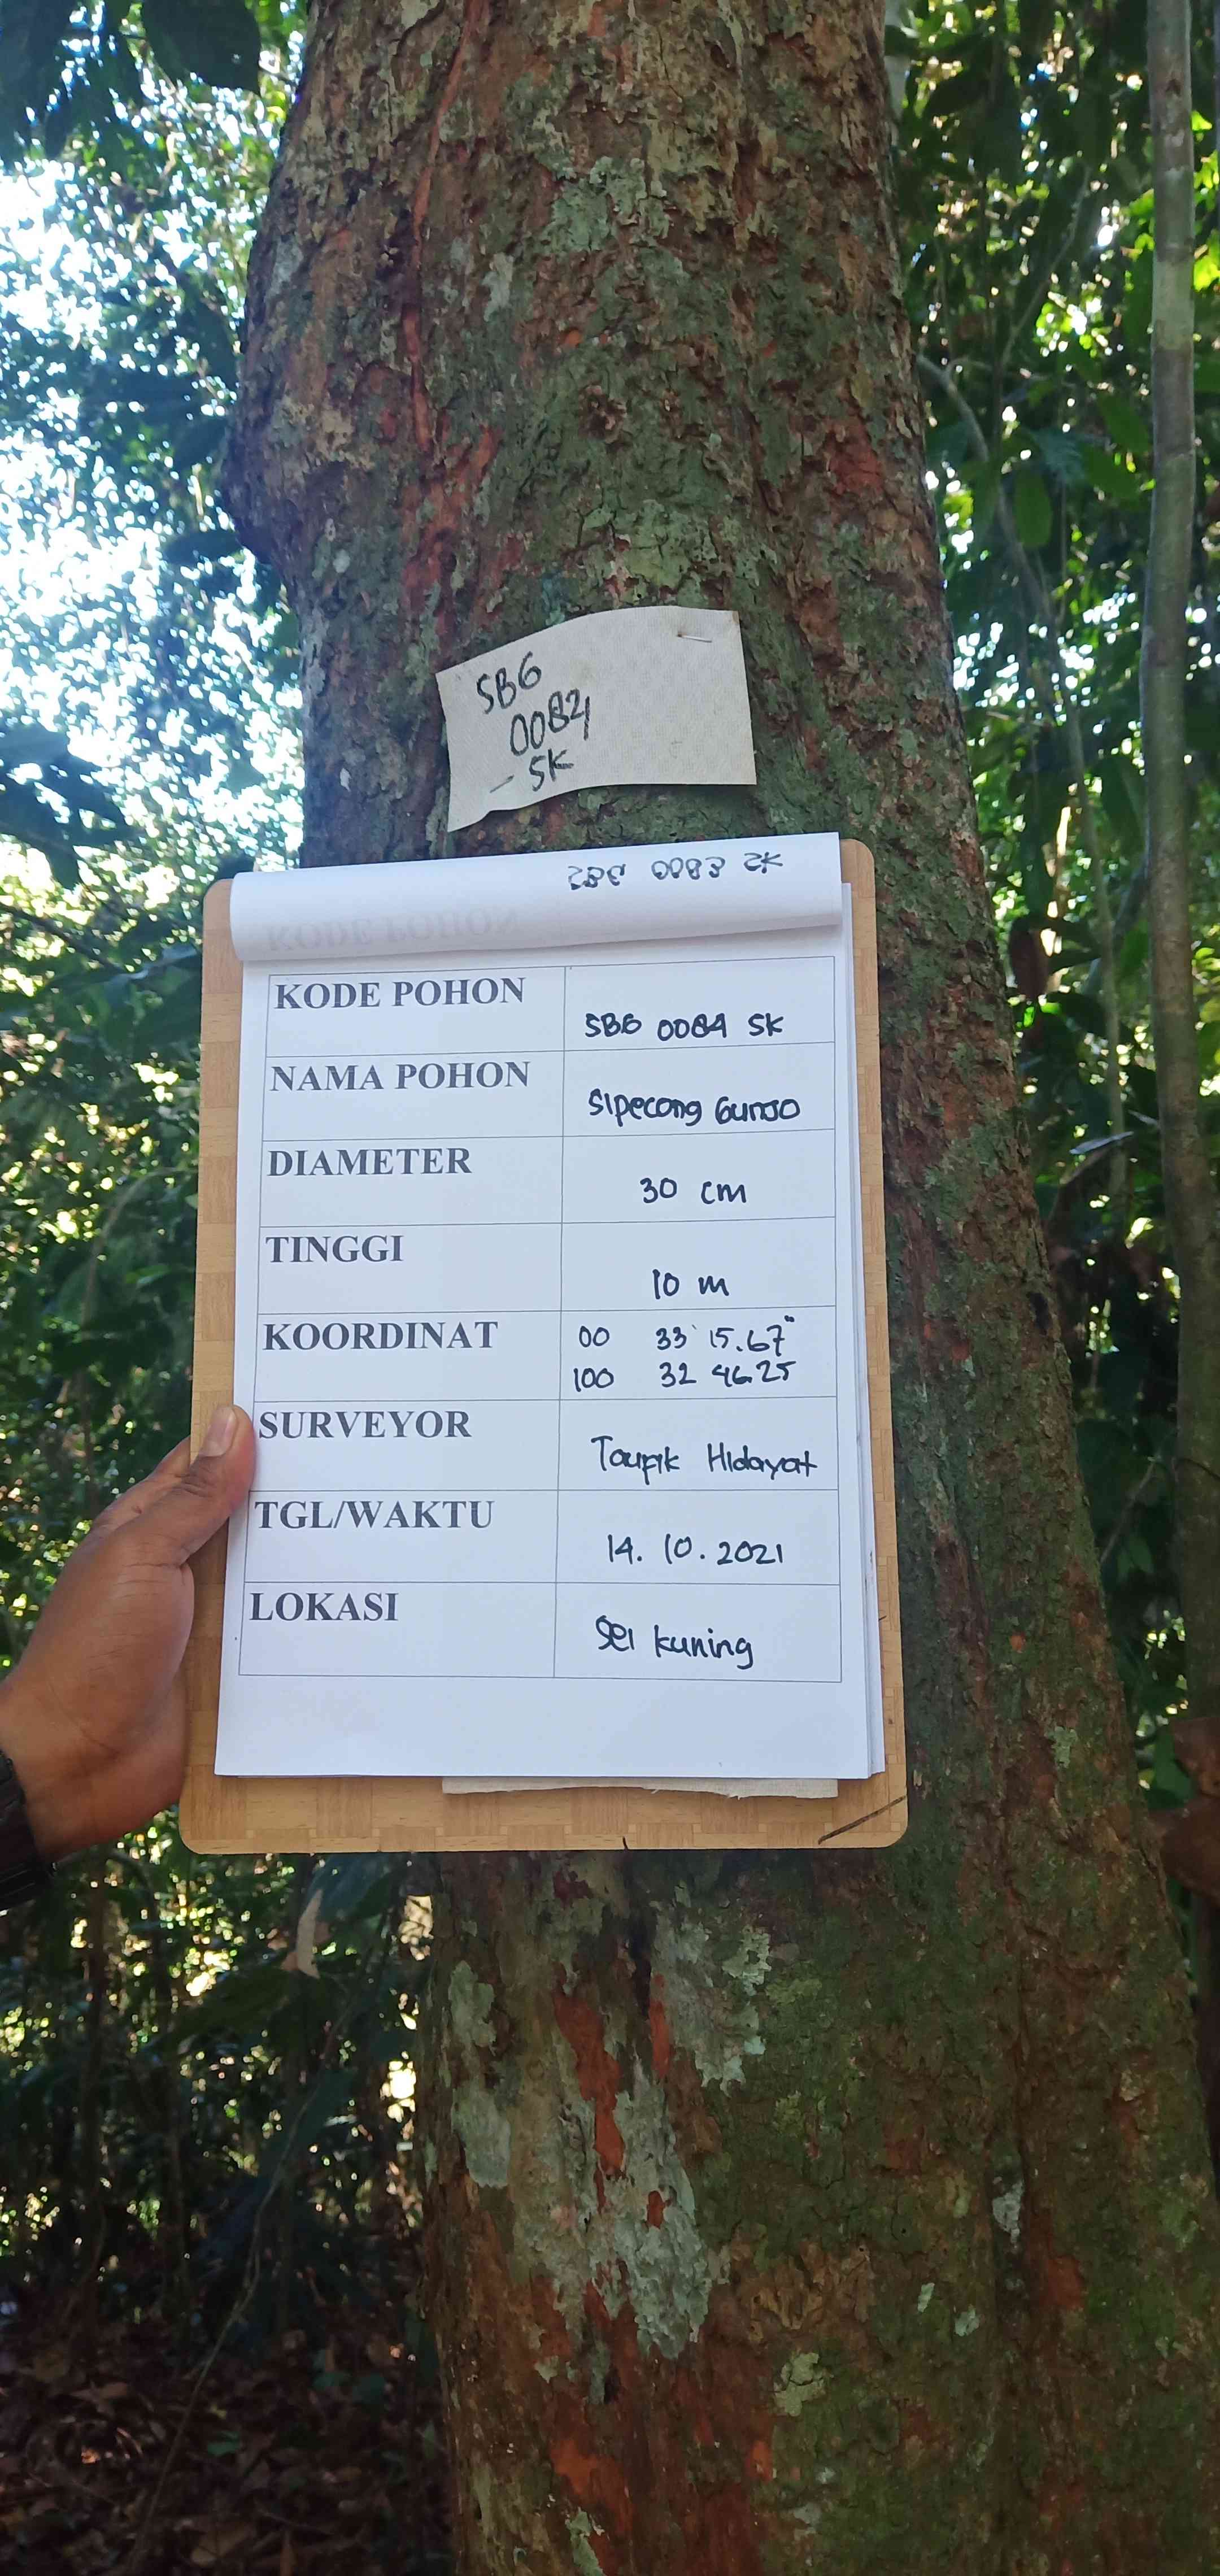 SBG
0084
- SK
KODE POHON
SBG 0084 SK
NAMA POHON
Sipecong Gunjo
DIAMETER
30 cm
TINGGI
10 m
KOORDINAT
00 33' 15.67"
100 32 46.25
SURVEYOR
Taupik Hidayat
TGL/WAKTU
14. 10. 2021
LOKASI
Sei kuning